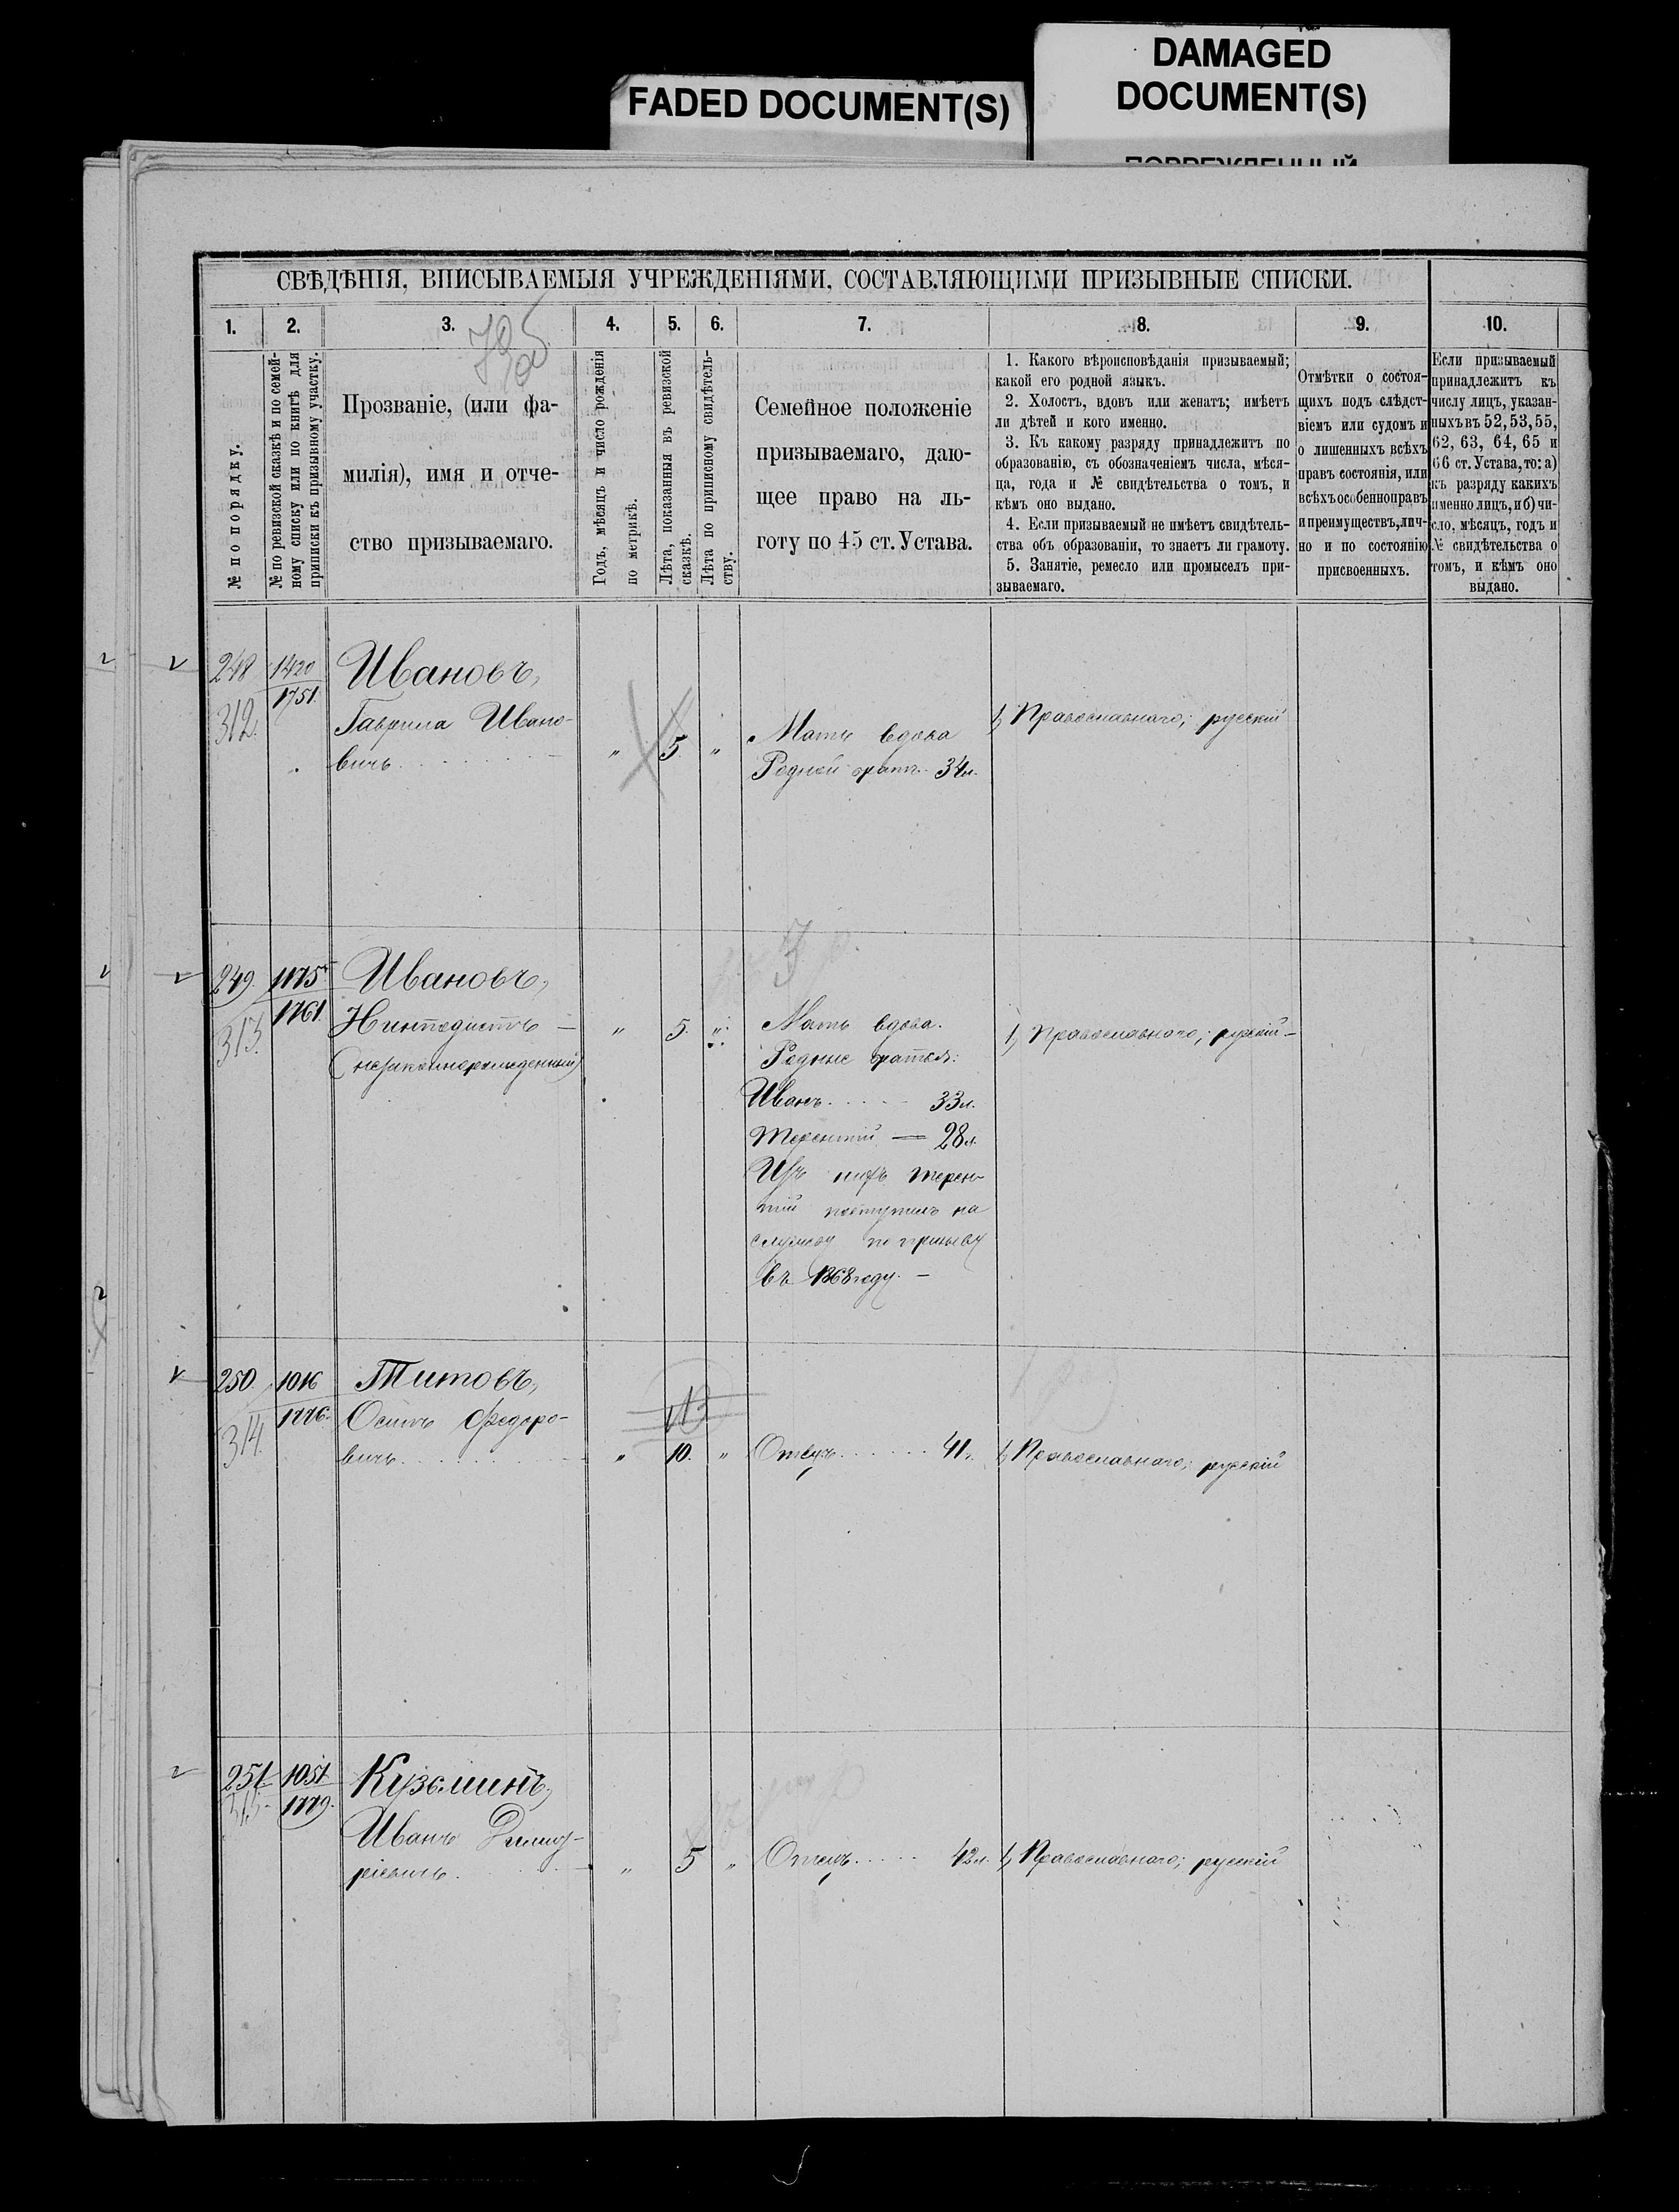 FADED DOCUMENT(S)
DAMAGED
DOCUMENT(S)
СВѢДѢНІЯ, ВПИСЫВАЕМЫЯ УЧРЕЖДЕНІЯМИ, СОСТАВЛЯЮЩИМИ ПРИЗЫВНЫЕ СПИСКИ.
1.
2.
3.
4.
5.
6.
7.
8.
9.
10.
№ по порядку.
№ по ревизской сказкѣ и по семей-
ному списку или по книгѣ для
приписки къ призывному участку.
Прозваніе, (или фа-
милія), имя и отче-
ство призываемаго.
Годъ, мѣсяцъ и число рожденія
по метрикѣ.
Лѣта, показанныя въ ревизской
сказкѣ.
Лѣта по приписному свидѣтель-
ству.
Семейное положеніе
призываемаго, даю-
щее право на ль-
готу по 45 ст. Устава.
1. Какого вѣроисповѣданія призываемый;
какой его родной языкъ.
2. Холостъ, вдовъ или женатъ; имѣетъ
ли дѣтей и кого именно.
3. Къ какому разряду принадлежитъ по
образованію, съ обозначеніемъ числа, мѣся-
ца, года и № свидѣтельства о томъ, и
кѣмъ оно выдано.
4. Если призываемый не имѣетъ свидѣтель-
ства объ образованіи, то знаетъ ли грамоту.
5. Занятіе, ремесло или промыселъ при-
зываемаго.
Отмѣтки о состоя-
щихъ подъ слѣдст-
віемъ или судомъ и
о лишенныхъ всѣхъ
правъ состоянія, или
всѣхъ особенно правъ
и преимуществъ, лич-
но и по состоянію
присвоенныхъ.
Если призываемый
принадлежитъ къ
числу лицъ, указан-
ныхъ въ 52, 53, 55,
62, 63, 64, 65 и
66 ст. Устава, то: а)
къ разряду какихъ
именно лицъ, и б) чи-
сло, мѣсяцъ, годъ и
№ свидѣтельства о
томъ, и кѣмъ оно
выдано.
248
312.
1420
1751.
Ивановъ,
Гаврила Ивано-
вичъ
"
5.
"
Мать вдова
Родной братъ 34л.
1, Православнаго; русскій
249.
313.
1175
1761.
Ивановъ,
(незаконнорожденный)
"
5.
"
Мать вдова.
Родные братья:
Иванъ 33л.
Терентій — 28л.
Изъ нихъ Терен-
тій поступилъ на
службу по призыву
въ 1868 году. —
1, Православнаго; русскій —
250.
314.
1016
1776.
Титовъ,
Осипъ Федоро-
вичъ
"
10.
"
Отецъ 41л.
1, Православнаго; русскій
251
315.
1051
1779.
Кузьминъ,
Иванъ Димит-
ріевичъ
"
5
"
Отецъ 42л.
1, Православнаго; русскій